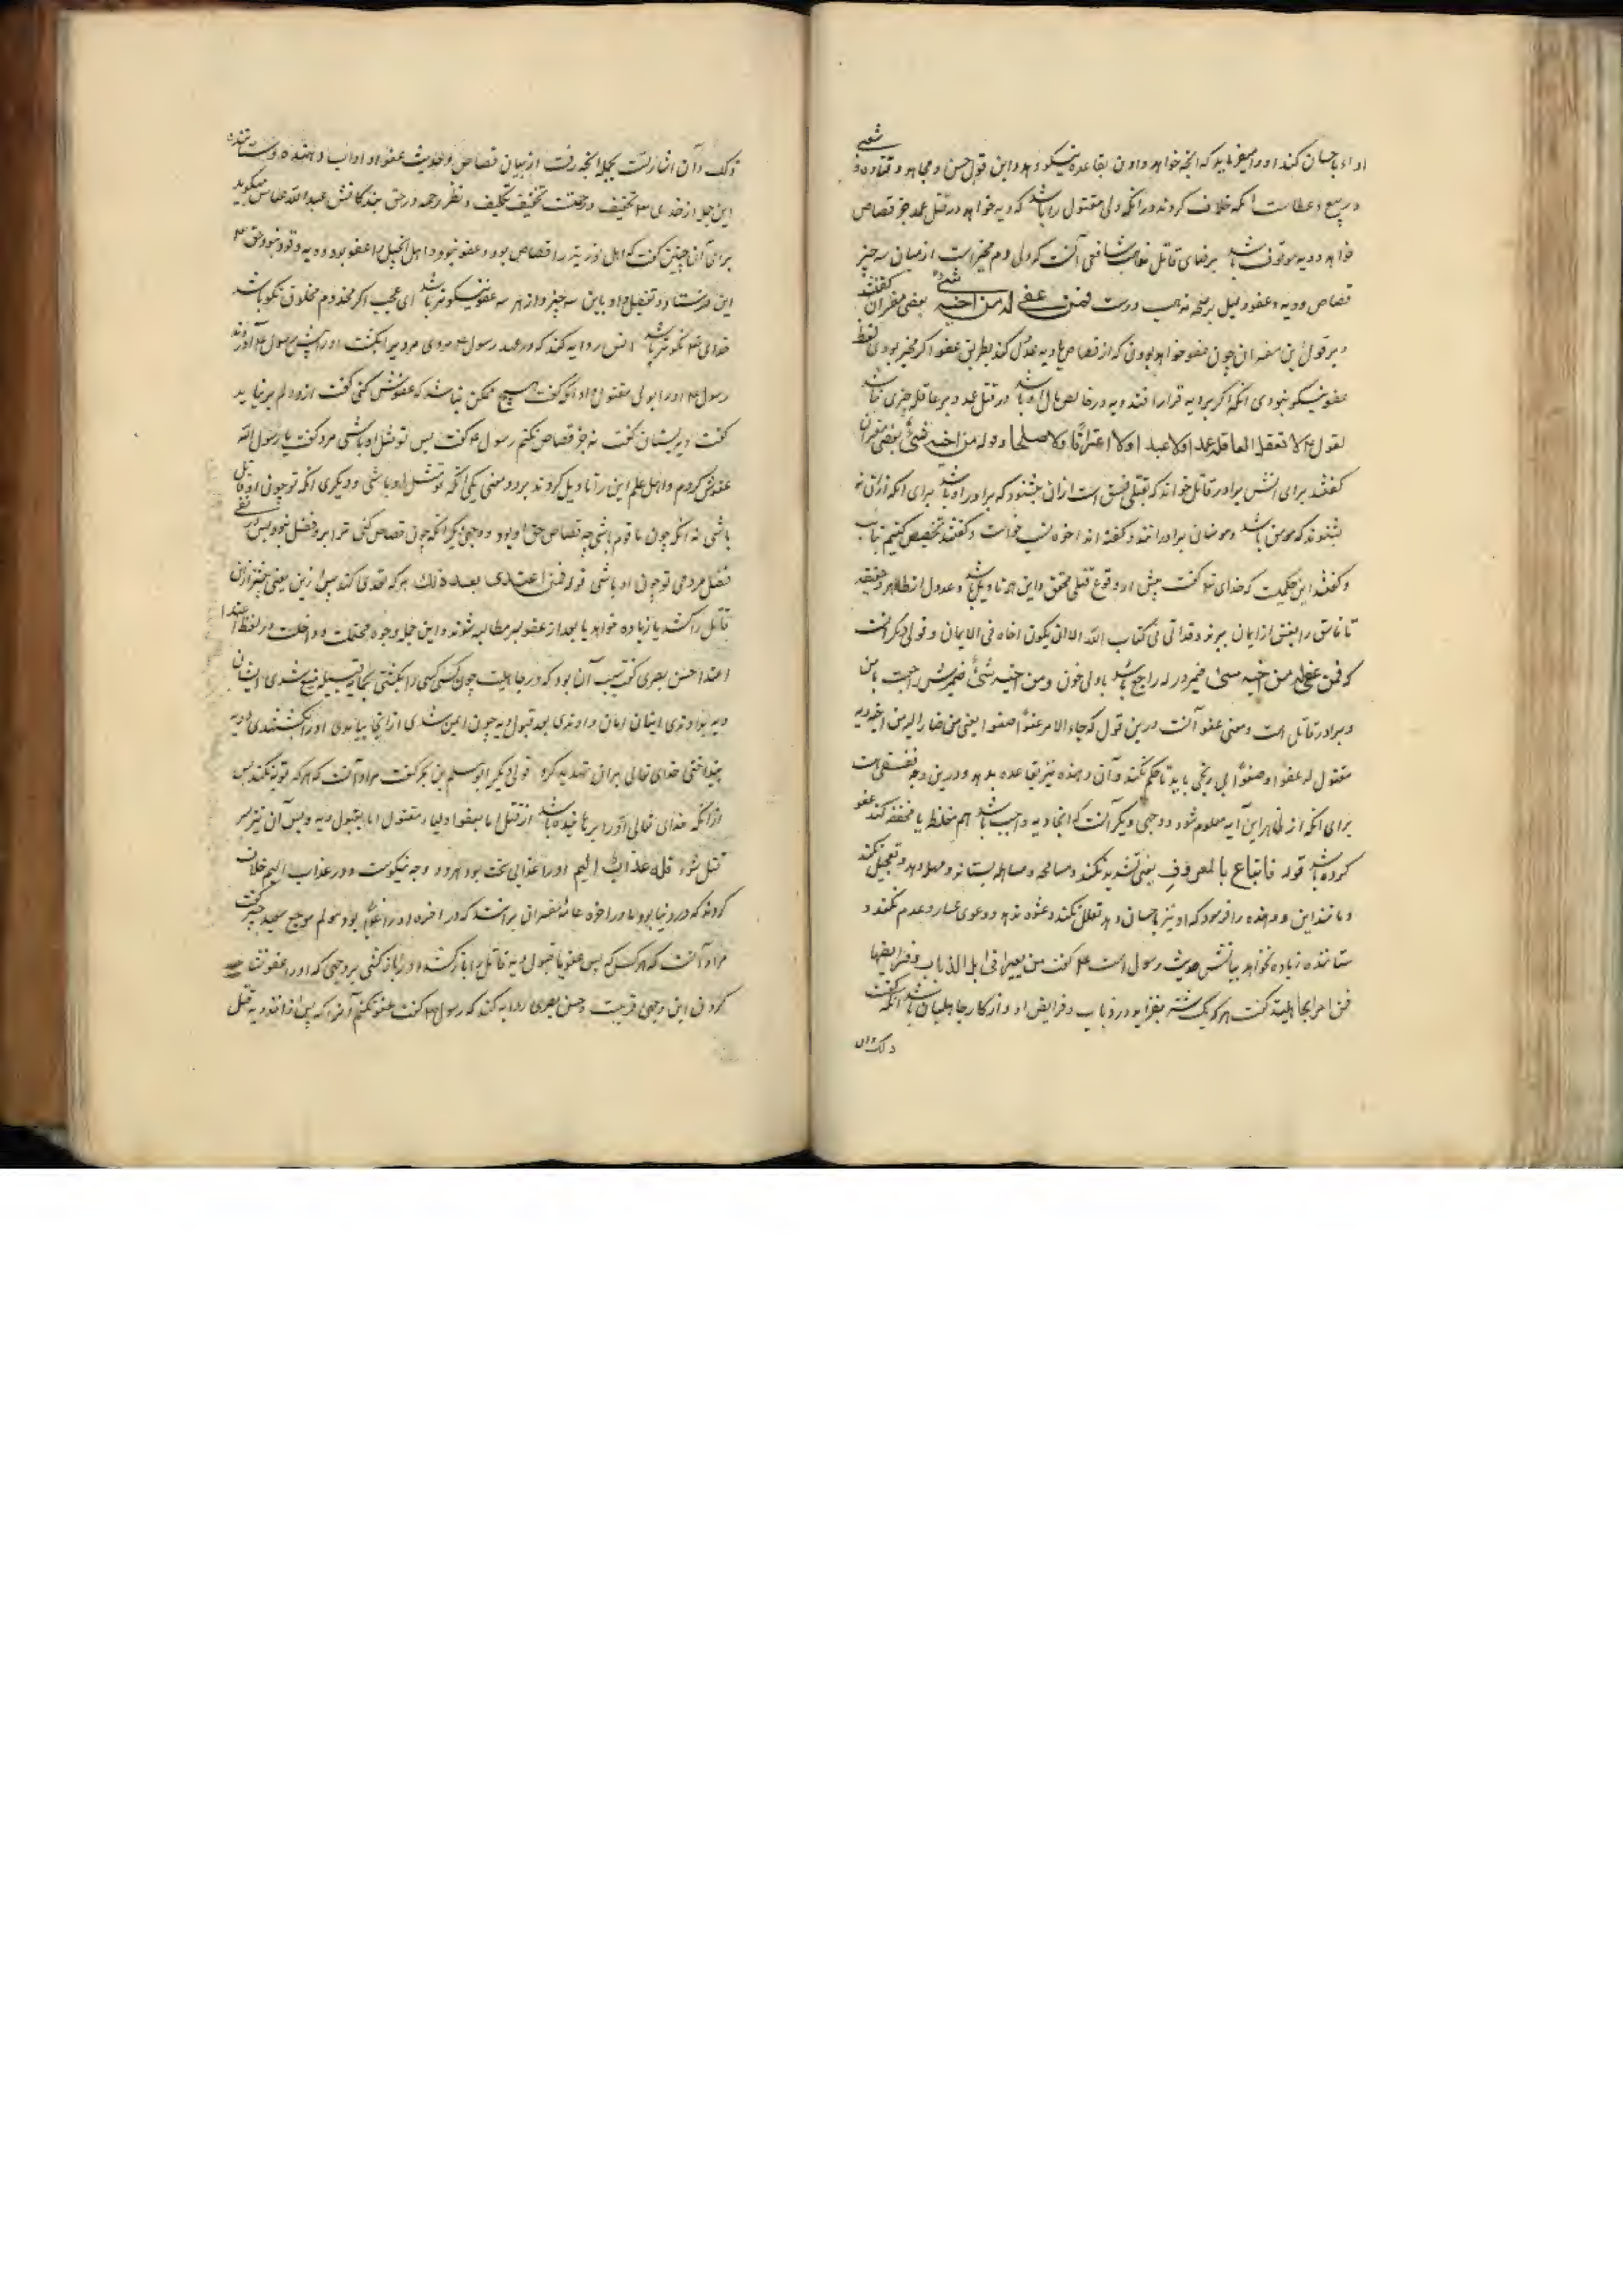 اداء باحسان کند او را میفرماید که انچه خواهد دادن بقاعده نیکو دهد و این قول حسن و مجاهد و قتاده و شعبی
و ربیع و عطاست انکه خلاف کردند در انکه ولی مقتول را باشد که دیه خواهد در قتل عمد جز قصاص
خواهد و دیه موقوف باشد بر رضای قاتل مذهب شافعی آنست که ولی دم مخیر است از میان سه چیز
قصاص و دیه و عفو و دلیل بر صحه مذهب درست فمن عفی له من اخیه شیء بعضی مفسران گفتند
و بر قول این مفسران چون عفو خواهد بودن که از قصاص با دیه عدول کند بطریق عفو اگر مخیر بودی لفظ
عفو نیکو نبودی انکه اگر بر دیه قرار افتد دیه در خالص مال او باشد در قتل عمد و بر عاقله چیزی نباشد
لقوله ع لا تعقل العاقلة عمدا ولا عبدا ولا اعترافا ولا صلحا و قوله من اخیه شیء بعضی مفسران
گفتند برای انش برادر قاتل خواند که بقتلی فسق است از ان بنشود که برادر او باشد برای انکه از ان نه
بشود که مومن باشد و مومنان برادرانند و گفته اند اخوه نسب خواست و گفتند تخصیص کنیم بتایب
و گفتند این حکمیست که خدای تع گفت پیش از وقوع قتلی محقق و این همه تاویل باشد و عدول از ظاهر و حقیقه
تا فاسق را بفسق از ایمان ببرند و قد اتی فی کتاب الله الا ان یکون اخاه فی الایمان و قولی دیگر انست
که فمن عفی له من اخیه شیء ضمیر در له راجع باشد با ولی خون و من اخیه شیء ضمیرش راجعست با من
و برادر قاتل است و معنی عفو آنست درین قول که جاء الامر عفوا صفوا یعنی من صار له من اخیه دیه
مقتول له عفوا و صفوا بی رنجی باید تا حکم نکند و آن دهنده نیز بقاعده بدهد و درین وجه تعسفی است
برای انکه از ظاهر این آیه معلوم شود و وجهی دیگر آنست که انجا دیه واجب باشد اهم مغلظ یا مخفف کند عفو
کرده باشد قوله فاتباع بالمعروف یعنی تشدید نکند و مسامحه و مساهله بستاند و مهلت دهد و تعجیل نکند
و مانند این و دهنده را فرمود که او نیز باحسان دهد تعلل نکند و عشوه ندهد و دعوی عسار و عدم نکند و
ستاننده زیاده نخواهد بیانش حدیث رسول است ع که گفت من بعیرا فی ابل الدیات و فرایضها
فمن امر الجاهلیة گفت هر که یک شتر بیفزاید در دیات و فرایض او از کار جاهلیان باشد انکه گفت
ذلک و آن
ذلک و آن اشارتست بجمله انچه رفت از بیان قصاص و حدیث عفو و اداب دهنده و ستاننده
این جمله از خدای تع تخفیف و رحمتست تخفیف تکلیف و نظر رحمه در حق بندگانش عبد الله عباس میگوید
برای آن چنین گفت که اهل توریة را قصاص بود و عفو نبود و اهل انجیل را عفو بود و دیه و قود نبود حق تع
این فرستاد و تفضل داد باین سه چیز و از هر سه عفو نیکوتر باشد ای عجب اگر مخدوم مخلوق نکو باشد
خدای تع نکوتر باشد انس روایه کند که در عهد رسول ع مردی مردیرا بکشت او را پیش رسول ع آوردند
رسول ع او را بولی مقتول داد آنگه گفت هیچ ممکن نباشد که عفوش کنی گفت از دلم بر نیاید
گفت دیه بستان گفت نه جز قصاص نکنم رسول ع گفت پس تو مثل او باشی مرد گفت یا رسول الله
عفوش کردم و اهل علم این را تاویل کردند بر دو معنی یکی انکه تو مثل او باشی و دیگری انکه تو چون او قاتل
باشی نه انکه چون ما قوم باشی چه قصاص حق او بود و وجهی دیگر انکه چون قصاص کنی ترا بر او فضلی نبود پس در نفی
فضل مردمی تو چون او باشی قوله فمن اعتدی بعد ذلک هر که تعدی کند پس از این یعنی جز از این
قاتل را کشد یا زیاده خواهد یا بعد از عفو بر مطالبه شوند و این جمله وجوه محتملست و داخلست در لفظ اعتدا
اعتدا حسن بصری گفت سبب آن بود که در جاهلیت چون کسی کسی را بکشتی بجانب قبیله منیع شدی ایشان
دیه بدادندی ایشان امان دادندی بعد قبول دیه چون ایمن شدی از انجا بیامدی او را بکشتندی و دیه
بینداختی خدای تعالی بر ان تهدید کرد قولی دیگر ابو مسلم بن بحر گفت مراد آنست که هر که توبه نکند پس
از انکه خدای تعالی او را برهانیده باشد از قتل اما بعفو اولیاء مقتول اما بقبول دیه و پس آن نیز بسر
قتل شود فله عذاب الیم او را عذابی سخت بود هر دو وجه نیکوست و در عذاب الیم خلاف
کردند که در دنیا بود یا در اخره عامه مفسران برانند که در اخره او را عذاب بود مولم موجع سعید جبیر گفت
مراد آنست که هر کس که پس عفو یا قبول دیه قاتل را باز کشد او را باز کشی بر وجهی که او را عفو نشاید
کردن این وجهی قریبست و حسن بصری روایه کند که رسول ع گفت عفو نکنم آنرا که پس از اخذ دیه قتل